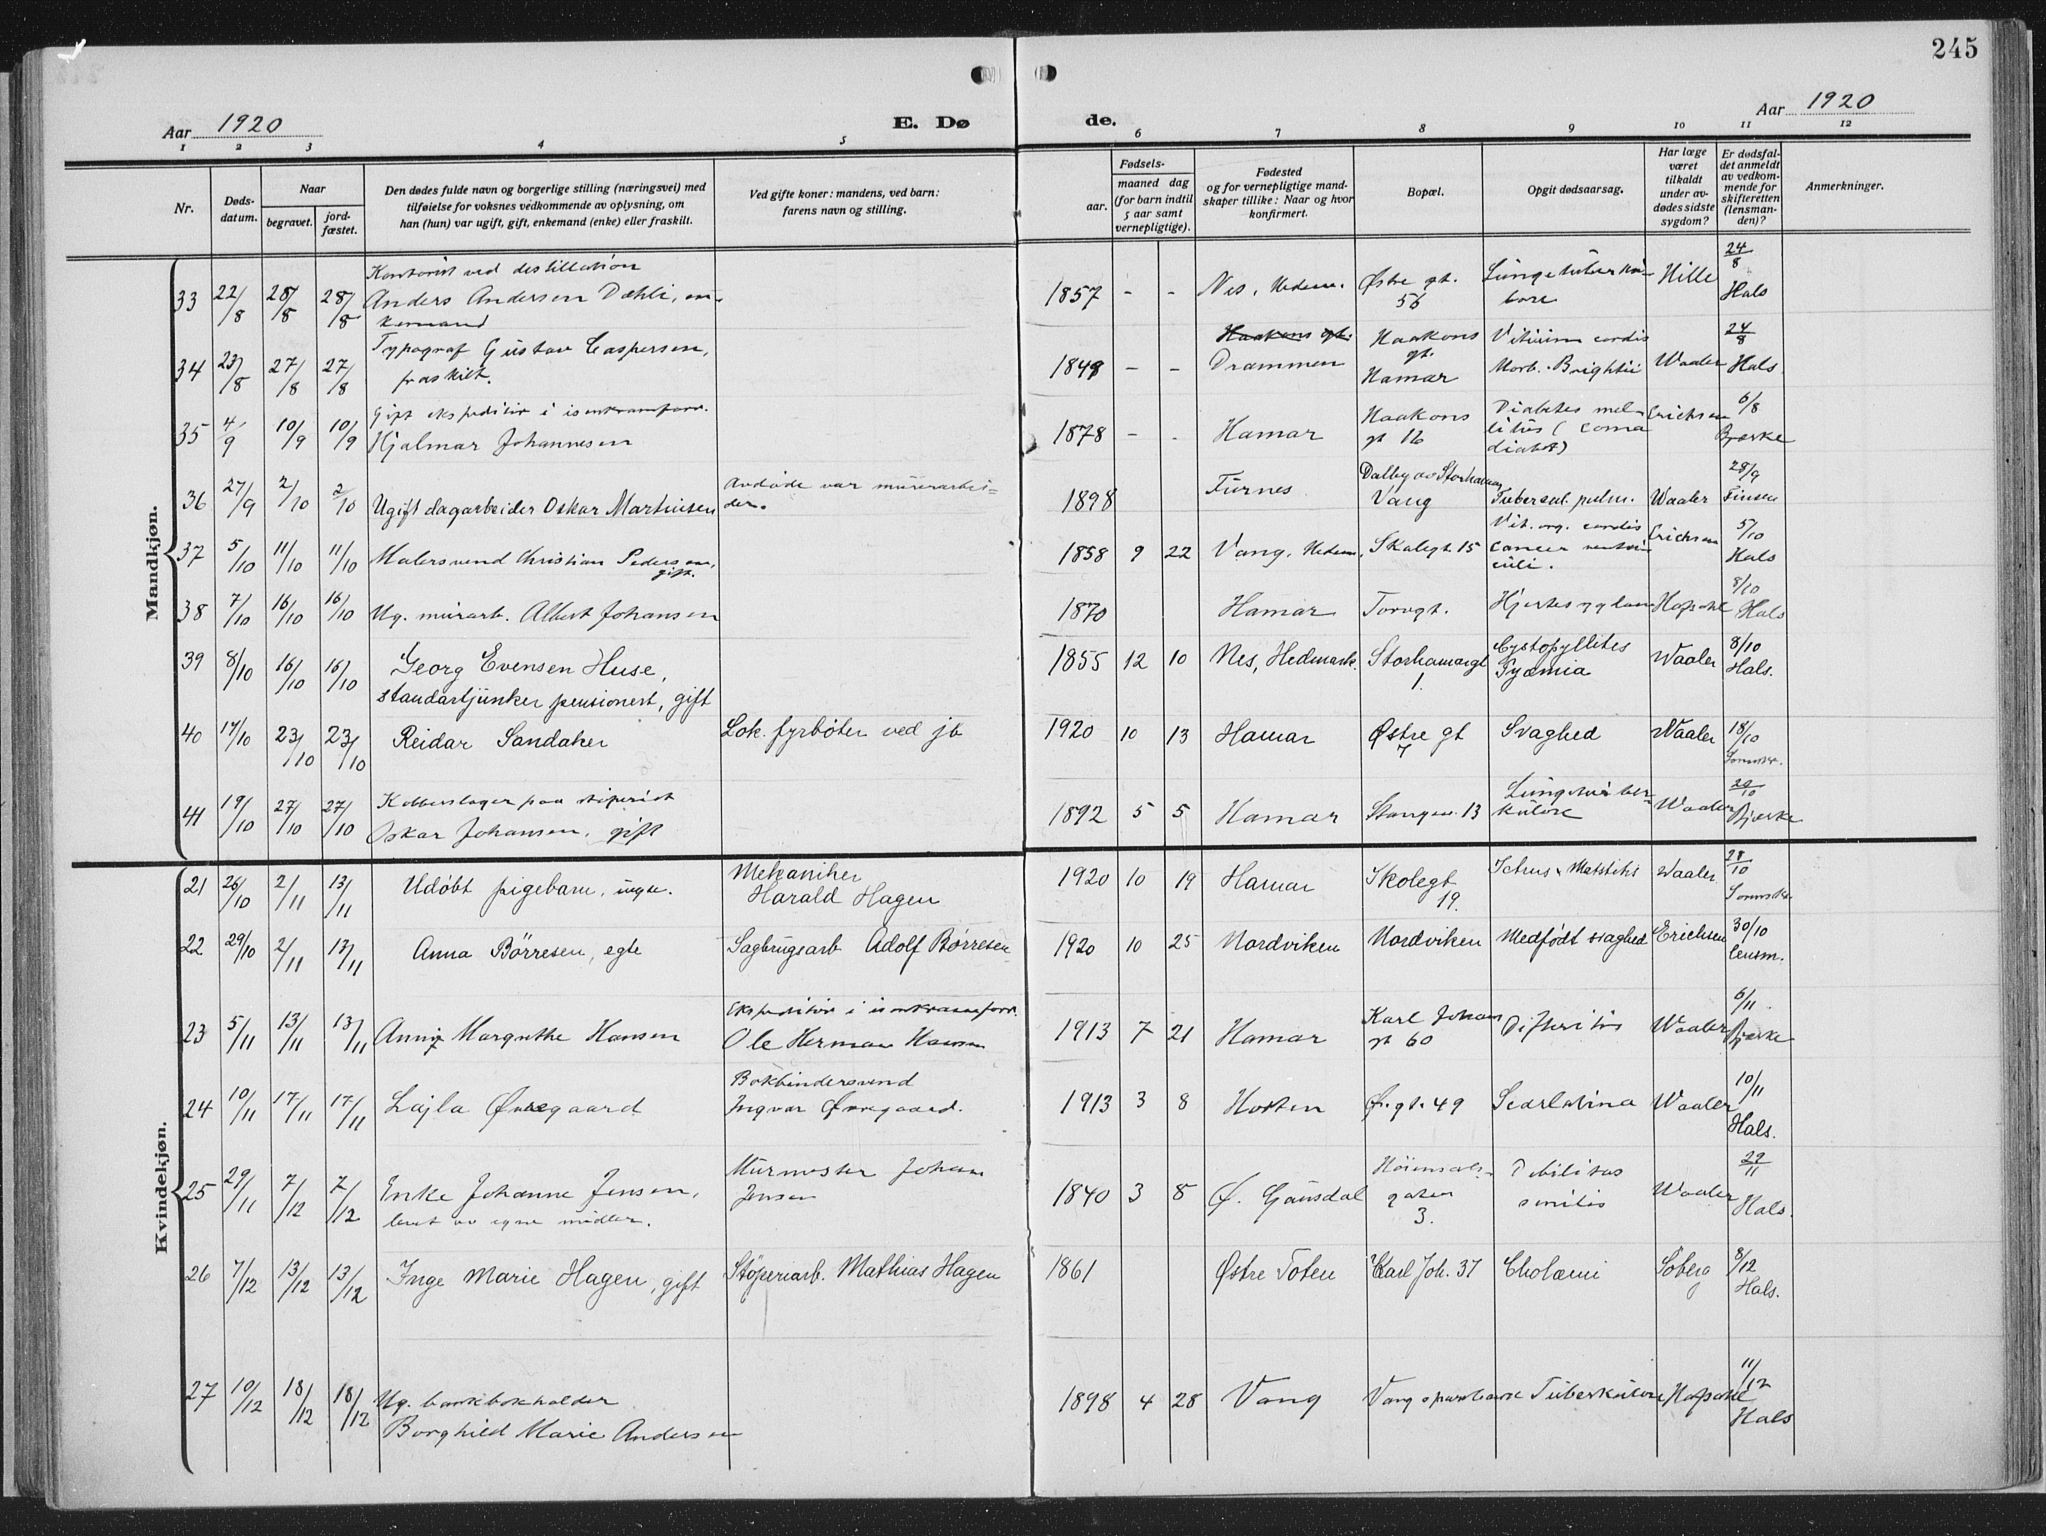 245
Aar 1920
E. Dø
de.
Aar 1920
1 2 3 4 5 6 7 8 9 10 11 12
Nr.
Døds-
datum.
Naar
begravet.
jord-
fæstet.
Den dødes fulde navn og borgerlige stilling (næringsvei) med
tilføielse for voksnes vedkommende av oplysning, om
han (hun) var ugift, gift, enkemand (enke) eller fraskilt.
Ved gifte koner: mandens, ved barn:
farens navn og stilling.
Fødsels-
aar.
maaned dag
(for barn indtil
5 aar samt
vernepligtige).
Fødested
og for vernepligtige mand-
skaper tillike: Naar og hvor
konfirmert.
Bopæl.
Opgit dødsaarsag.
Har læge
været
tilkaldt
under av-
dødes sidste
sygdom?
Er dødsfal-
det anmeldt
av vedkom-
mende for
skifteretten
(lensman-
den)?
Anmerkninger.
Mandkjøn.
Kontorist ved destillation
33 22/8 28/8 28/8 Anders Andersen Dæhli, en-
kemand
1857 - - Nes, Hedem. Østre gt. 56 Lungetuberku-
lose Hille 24/8 Hals
34 23/8 27/8 27/8 Typograf Gustav Caspersen,
fraskilt.
1849 - - Haakons gt. Drammen Haakons gt. Hamar Vitium cordis
Morb. Brightii Waaler 24/8 Hals.
35 4/9 10/9 10/9 Gift ekspeditør i isenkramforr.
Hjalmar Johannesen
1878 - - Hamar Haakons gt 16 Diabetes mel-
litus (coma
diabet) Erichsen 6/8 Bjerke
36 27/9 2/10 2/10 Ugift dagarbeider Oskar Martinsen Avdøde var murerarbei-
der.
1898 Furnes Dalby av Storhamar Vang Tubercul. pulm. Waaler 28/9 Finsen
37 5/10 11/10 11/10 Malersvend Christian Pedersen,
gift.
1858 9 22 Vang, Hedem. Skolegt. 15 Vit. org. cordis
cancer ventri-
culi. Erichsen 5/10 Hals
38 7/10 16/10 16/10 Ug. murarb. Albert Johansen
1870 Hamar Torvgt. Hjertesygdom Hospital 8/10 Hals
39 8/10 16/10 16/10 Georg Evensen Huse,
standartjunker pensionert, gift
1855 12 10 Nes, Hedmark. Storhamargt 1. Cystopyllites
Pyæmia Waaler 8/10 Hals.
40 17/10 23/10 23/10 Reidar Sandaker Lok. fyrbøter ved jb
1920 10 13 Hamar Østre gt 7 Svaghed Waaler 18/10
41 19/10 27/10 27/10 Kobberslager paa støperiet
Oskar Johansen, gift
1892 5 5 Hamar Stangev. 13 Lungetuber-
kulose Waaler 20/10 Bjerke
Kvindekjøn.
21 26/10 2/11 13/11 Udøbt pigebarn, Mekaniker
Harald Hagen
1920 10 19 Hamar Skolegt 19. Waaler 28/10
22 29/10 2/11 13/11 Anna Börresen, egte Sagbrugsarb Adolf Børresen
1920 10 25 Nordviken Nordviken Medfödt svaghed Erichsen 30/10 lensm.
23 5/11 13/11 13/11 Anny Margrethe Hansen Ekspeditør i isenkramforr.
Ole Herman Hansen
1913 7 21 Hamar Karl Johans gt 60 Difteritis Waaler 6/11 Bjerke
24 10/11 17/11 17/11 Lajla Øvregaard Bokbindersvend
Ingvar Øvregaard.
1913 3 8 Horten Ø. gt. 49 Scarlatina Waaler 10/11 Hals.
25 29/11 7/12 7/12 Enke Johanne Jensen,
levet av egne midler. Murmester Johan
Jensen
1840 3 8 Ø. Gausdal Høiensals-
gaten 3. Debilitas
senilis Waaler 29/11 Hals.
26 7/12 13/12 13/12 Inge Marie Hagen, gift Støperiarb. Mathias Hagen
1861 Østre Toten Karl Joh. 37 Cholæmi Soberg 8/12 Hals.
27 10/12 18/12 18/12 Ug. bankbokholder
Borghild Marie Andersen
1898 4 28 Vang Vang sparebank Tuberkulose Hospital 11/12 Hals